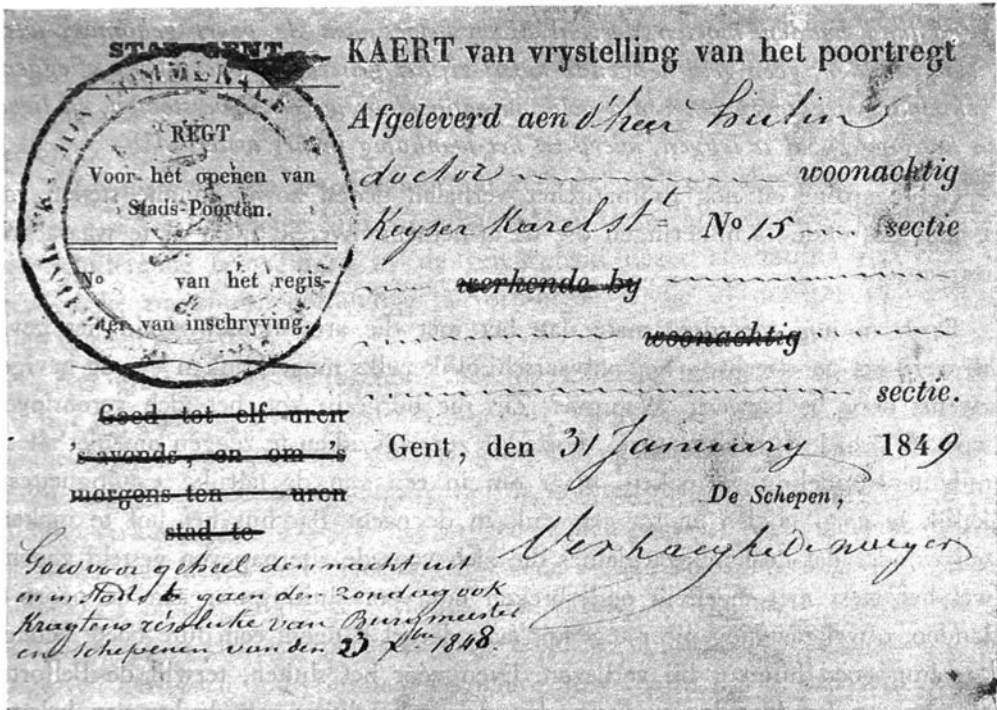 STAD GENT.
REGT
Voor het openen van
Stads-Poorten.
No van het regis-
ter van inschryving.
Goed tot elf uren
's avonds, en om 's
morgens ten uren
stad te
geheel den nacht uit
en in stad te gaen den zondag ook
Kragtens resolutie van Burgmeester
en schepenen van den 23 Xbre 1848.
KAERT van vrystelling van het poortregt
Afgeleverd aen d'heer Hulin
doctor woonachtig
Keyser Karelst No 15 sectie
werkende by
woonachtig
sectie.
Gent, den 31 January 1849
De Schepen,